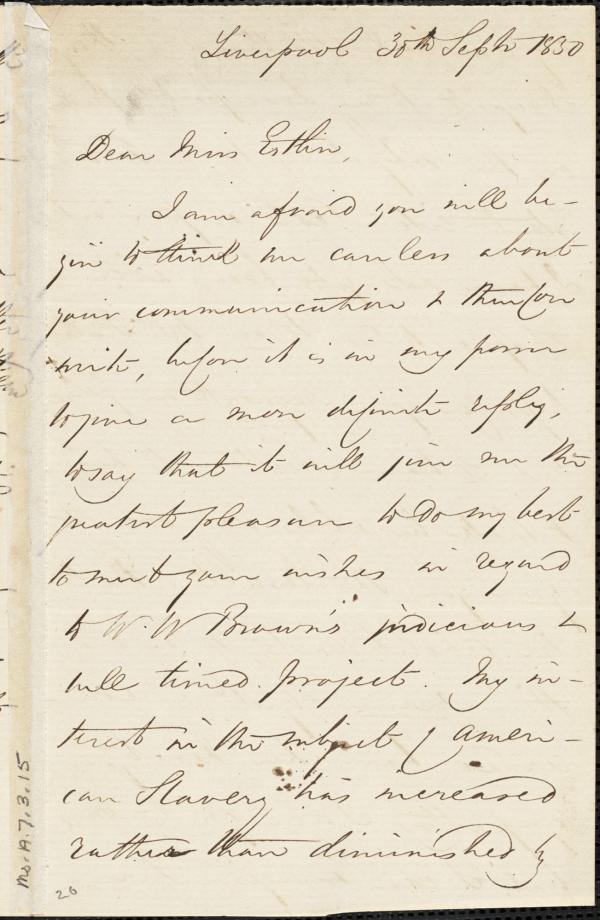 Liverpool 30th Sept 1850
Dear Miss Estlin,
I am afraid you will be-
gin to think me careless about
your communication & therefore
write, before it is in my power
to give a more definite reply,
to say that it will give me the
greatest pleasure to do my best
to meet your wishes in regard
to W. W Brown's judicious &
well timed project. My in-
terest in the subject of Ameri-
can Slavery has increased
rather than diminished by
Ms. A. 7. 3. 15
26